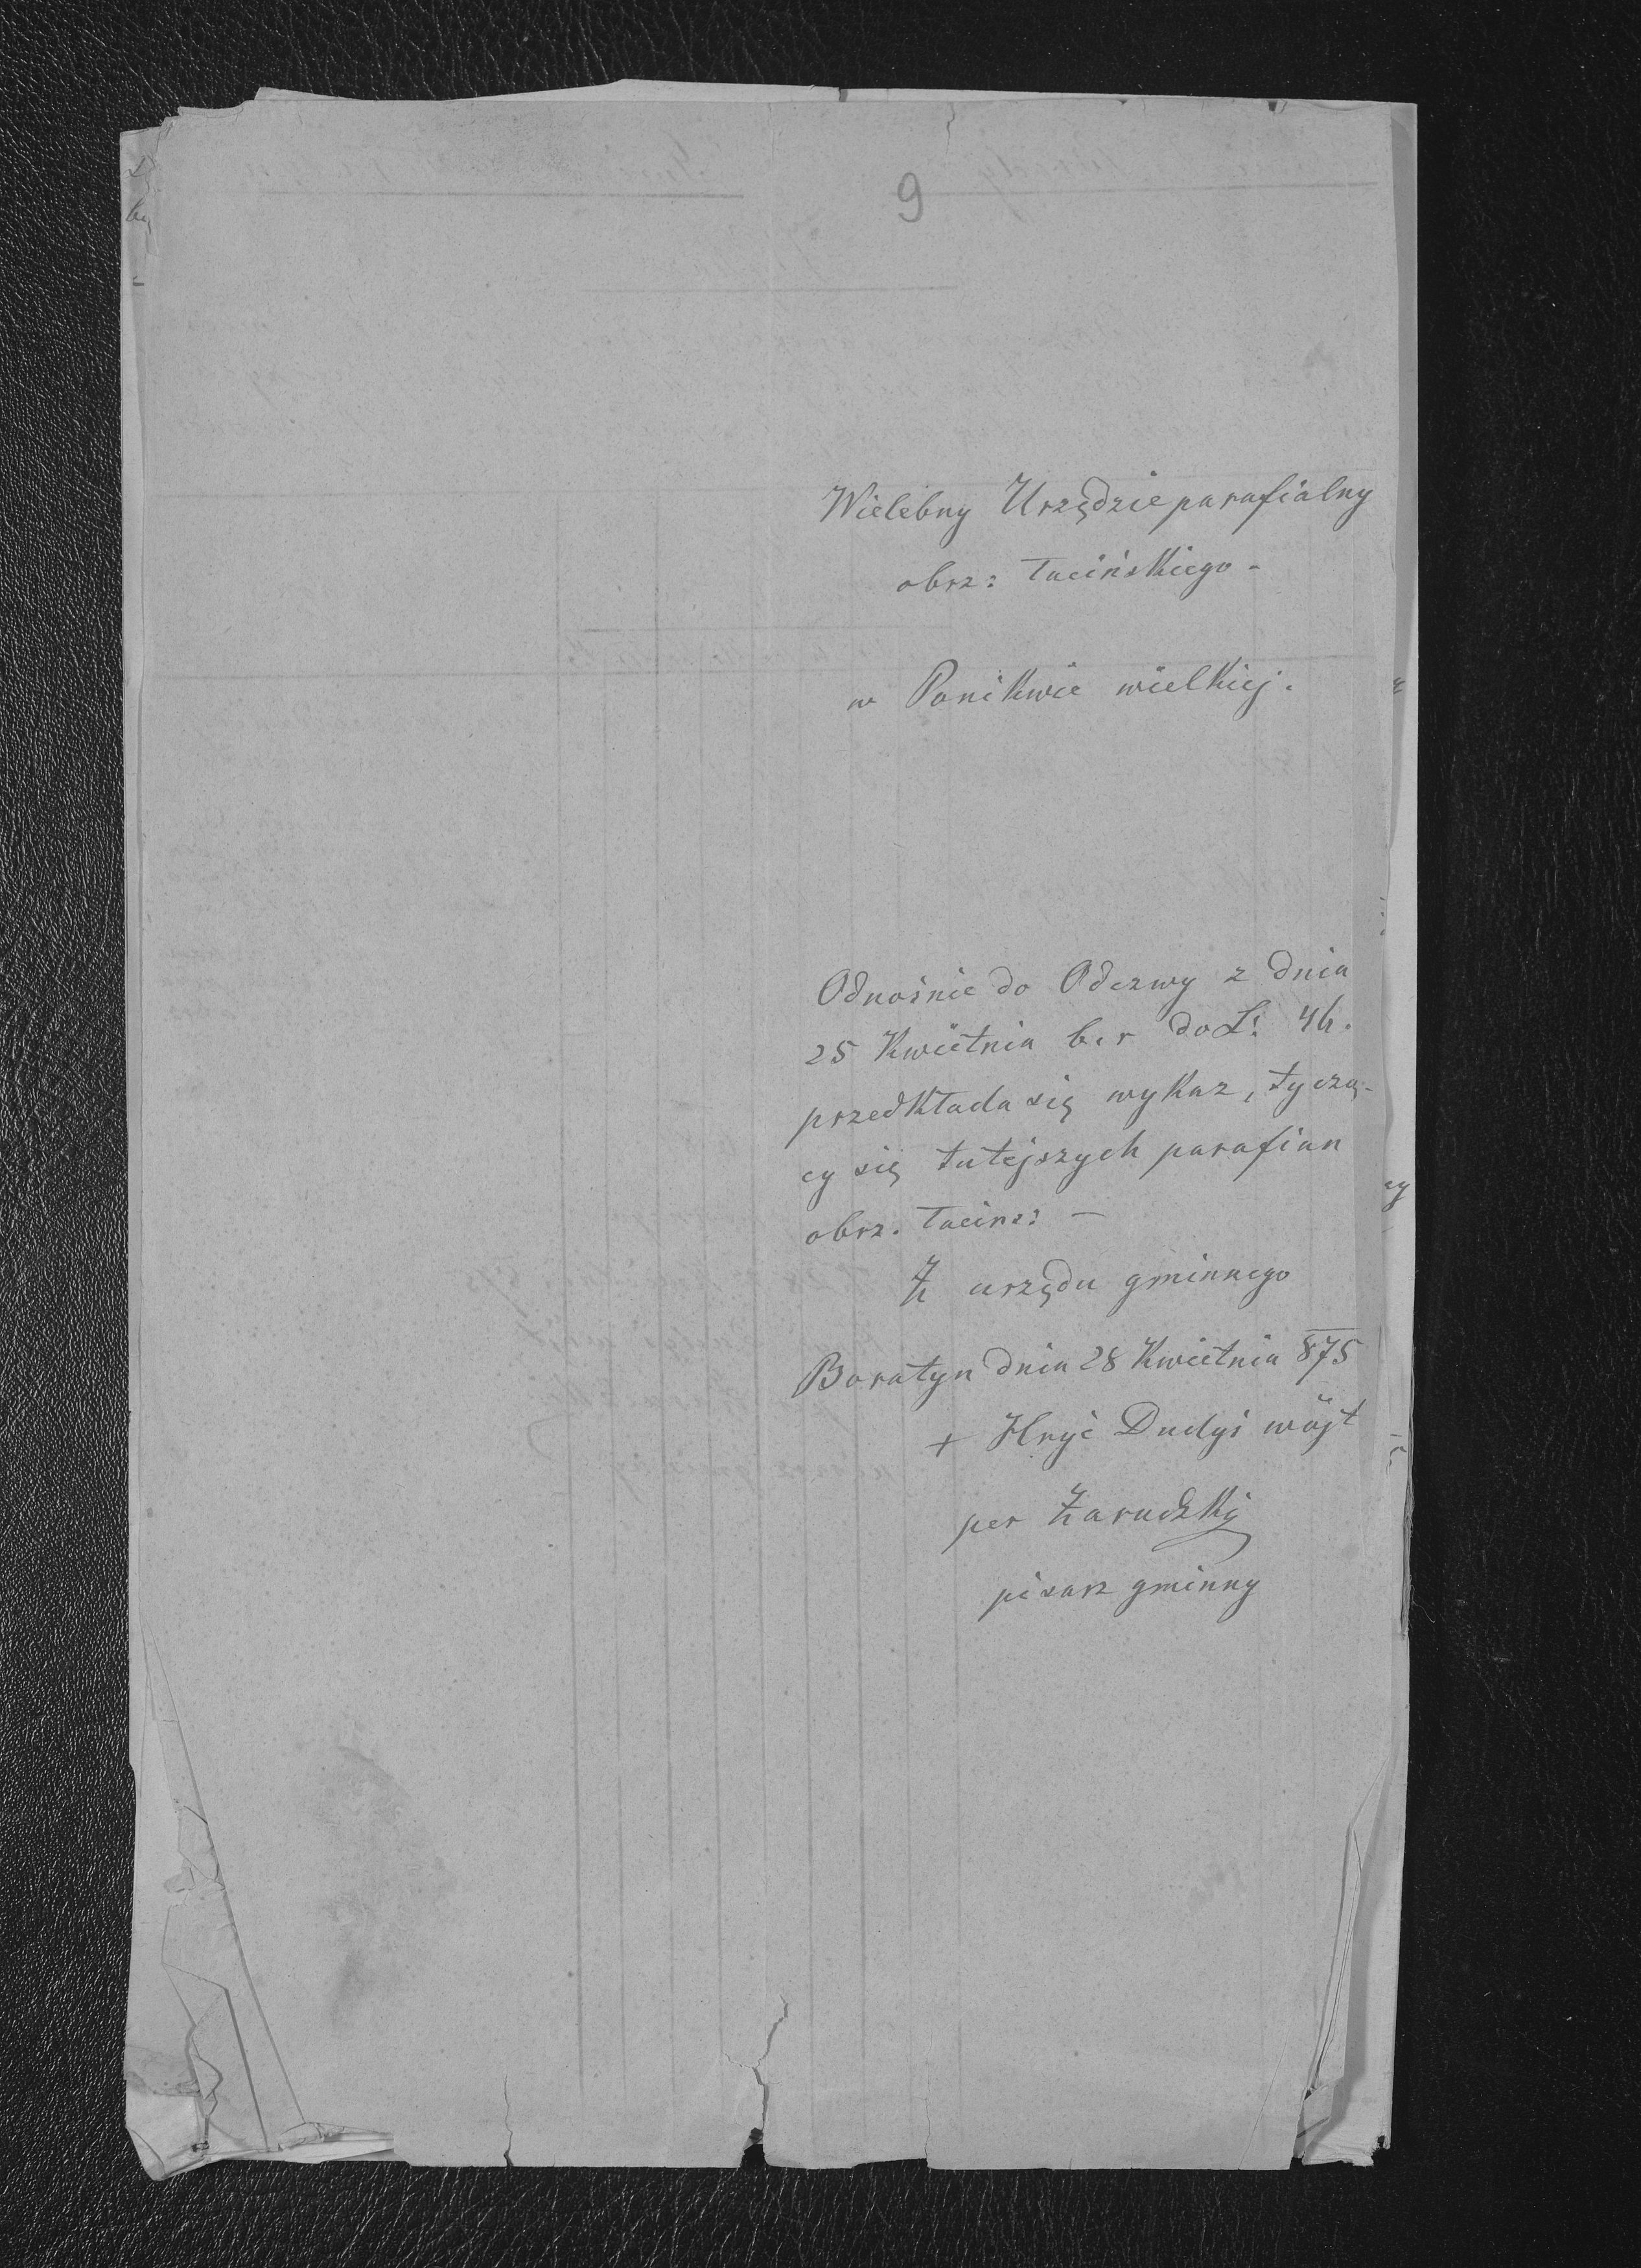 9
Wielebny Urzędzie parafialny
obrz: łacińskiego -
w Ponikwie wielkiej.
Odnośnie do Odezwy z dnia
25 Kwietnia b. r do L: 46.
przedkłada się wykaz, tyczą-
cy się tutejszych parafian
obrz. łacins: —
Z urzędu gminnego
Boratyn dnia 28 Kwietnia 875
+ Hryć Dudyś wójt
per Zarudzki
pisarz gminny